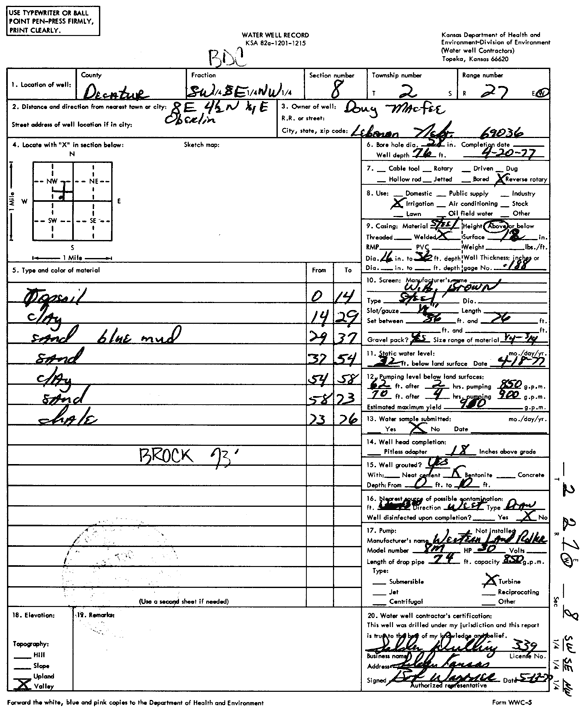 USE TYPEWRITER OR BALL
POINT PEN-PRESS FIRMLY,
PRINT CLEARLY.
WATER WELL RECORD
KSA 82a-1201-1215
Kansas Department of Health and
Environment-Division of Environment
(Water well Contractors)
Topeka, Kansas 66620
1. Location of well:
County
Decatur
Fraction
SW 1/4 SE 1/4 NW 1/4
Section number
8
Township number
T 2 S
Range number
R 27 E W
2. Distance and direction from nearest town or city: 8E 4½N ¼E
Street address of well location if in city: Oberlin
3. Owner of well: Doug Macfee
R.R. or street:
City, state, zip code: Lebanon Neb. 69036
4. Locate with "X" in section below:
Sketch map:
N
NW NE
W E
SW SE
S
1 Mile
1 Mile
6. Bore hole dia. in. Completion date
Well depth 76 ft. 4-20-77
7. Cable tool Rotary Driven Dug
Hollow rod Jetted Bored X Reverse rotary
8. Use: Domestic Public supply Industry
X Irrigation Air conditioning Stock
Lawn Oil field water Other
9. Casing: Material Steel Height: Above or below
Threaded Welded X Surface 18 in.
RMP PVC Weight lbs./ft.
Dia. 16 in. to 56 ft. depth Wall Thickness: inches or
Dia. in. to ft. depth gage No. .188
5. Type and color of material
From To
Topsoil 0 14
clay 14 29
sand blue mud 29 37
sand 37 54
clay 54 58
sand 58 73
shale 73 76
BROCK 73'
10. Screen: Manufacturer's name
W.R. Brown
Type Steel Dia.
Slot/gauze Length
Set between 56 ft. and 76 ft.
ft. and ft.
Gravel pack? yes Size range of material
11. Static water level: mo./day/yr.
32 ft. below land surface Date 4-18-77
12. Pumping level below land surfaces:
62 ft. after 2 hrs. pumping 850 g.p.m.
70 ft. after 4 hrs. pumping 900 g.p.m.
Estimated maximum yield 900 g.p.m.
13. Water sample submitted: mo./day/yr.
Yes X No Date
14. Well head completion:
Pitless adapter 18 Inches above grade
15. Well grouted? yes
With: Neat cement X Bentonite Concrete
Depth: From 0 ft. to 10 ft.
16. Nearest source of possible contamination:
ft. Direction West Type Draw
Well disinfected upon completion? Yes X No
17. Pump: Not installed
Manufacturer's name Western Land Roller
Model number 8M HP 50 Volts
Length of drop pipe 74 ft. capacity 850 g.p.m.
Type:
Submersible X Turbine
Jet Reciprocating
Centrifugal Other
(Use a second sheet if needed)
18. Elevation:
19. Remarks:
Topography:
Hill
Slope
Upland
X Valley
20. Water well contractor's certification:
This well was drilled under my jurisdiction and this report
is true to the best of my knowledge and belief.
Selden Drilling 339
Business name License No.
Address Selden Kansas
Signed Date
Authorized representative
Forward the white, blue and pink copies to the Department of Health and Environment
Form WWC-5
T 2 R 27 E W Sec 8 SW 1/4 SE 1/4 NW 1/4